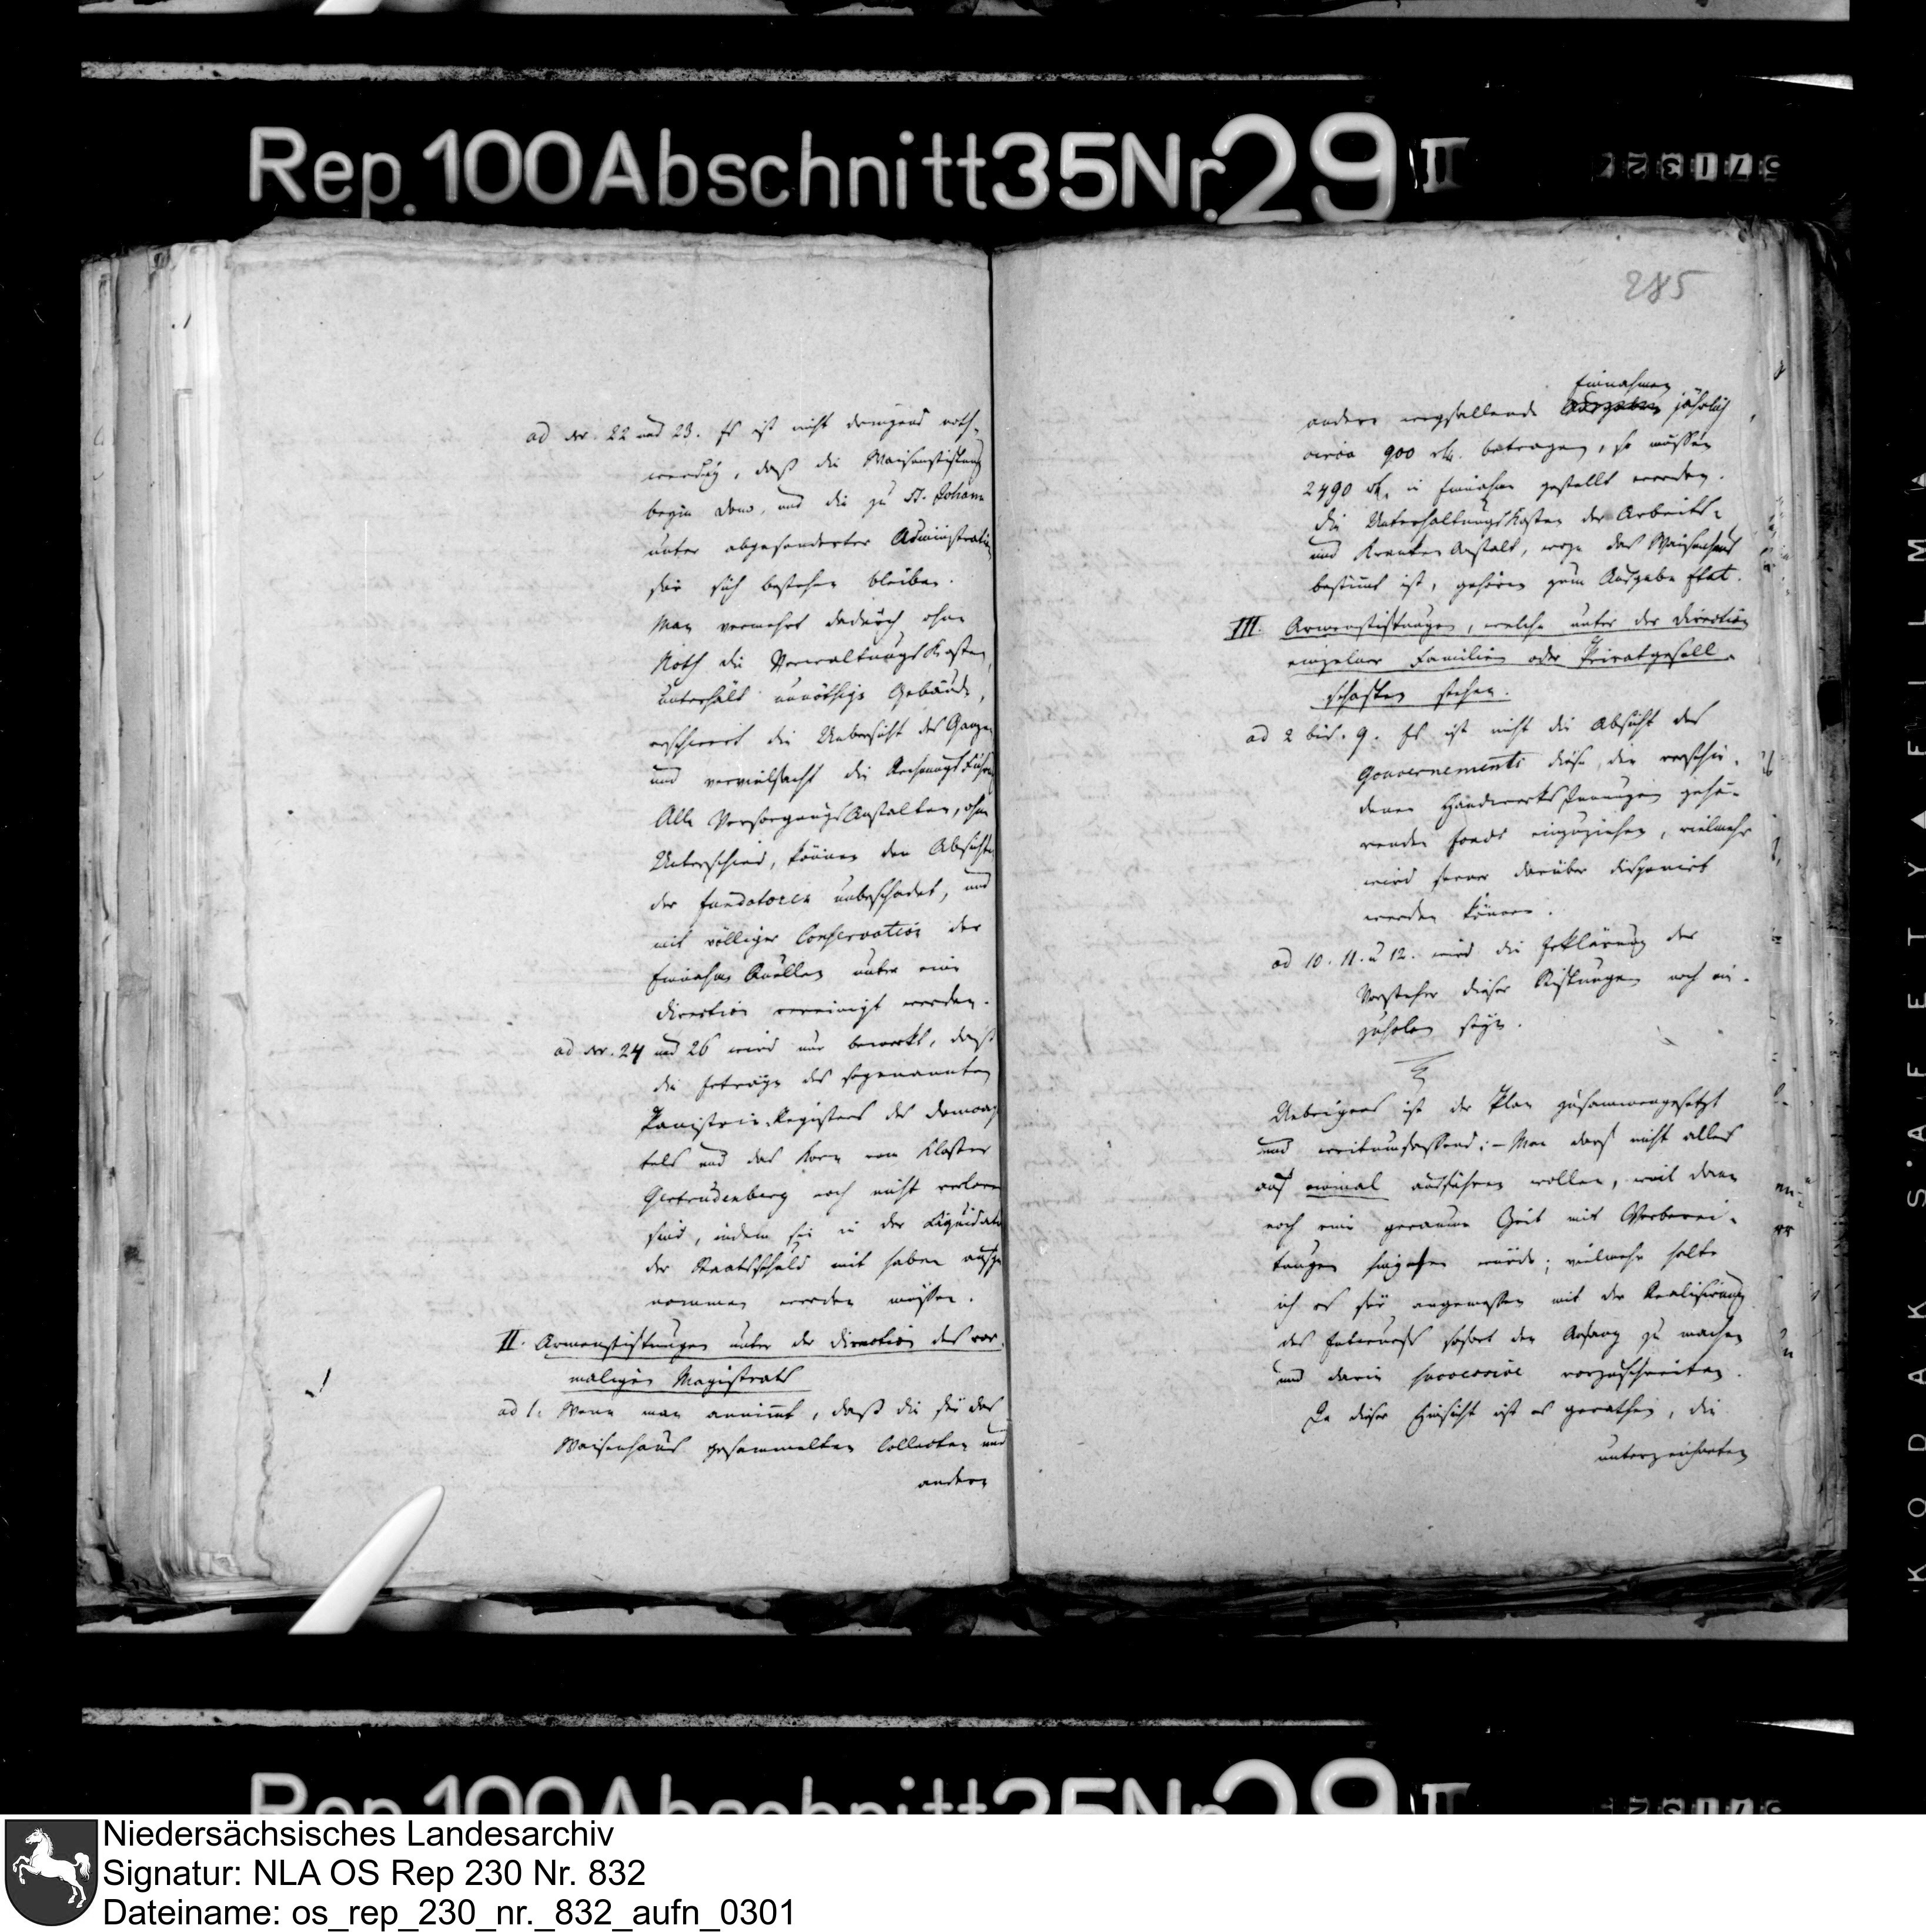 Rep. 100 Abschnitt 35 Nr. 29 II
ad Nr. 22 und 23. Es ist nicht dringend noth-
wendig, daß die Waisenstiftung
beym Dom, und die zu St. Johann
unter abgesonderter Administration
für sich bestehen bleiben.
Man vermehrt dadurch ohne
Noth die Verwaltungs Kosten,
unterhält unnöthige Gebäude,
erschwert die Uebersicht des Ganzen
und vervielfacht die Rechnungs Führ
Alle Versorgungs Anstalten, ohne
Unterschied, können den Absichten
der Fundatoren unbeschadet, und
mit völliger Conservation der
Einnahme Quellen unter eine
Direction vereinigt werden.
ad Nr. 24 und 26 wird nur bemerkt, daß
die Erträge des sogenannten
Panistrin-Registers des Domcapi
tels und das Korn vom Kloster
Gertrudenberg noch nicht verloren
sind, indem sie in der Liquidation
der Staatsschuld mit haben aufge
nommen werden müssen.
II. Armenstiftungen unter der Direction des vor
maligen Magistrats
ad 1. Wenn man annimmt, daß die für das
Waisenhaus gesammelten Collecten und
andere
285
Einnahmen
andere wegfallende Ausgaben jährlich
circa 900 rth. betragen, so müssen
2490 rth. in Einnahme gestellt werden.
Die Unterhaltungs Kosten der Arbeits-
und Kranken Anstalt, wozu das Waisenhaus
bestimmt ist, gehören zum Ausgabe Etat.
III. Armenstiftungen, welche unter der Direction
einzelner Familien oder Privatgesell-
schaften stehen.
ad 2 bis. 9. Es ist nicht die Absicht des
Gouvernements diese, den verschie-
denen Handwerks Innungen gehö-
renden Fonds einzuziehen, vielmehr
wird ferner darüber disponirt
werden können.
ad 10. 11. u 12. wird die Erklärung der
Vorsteher dieser Stiftungen noch ein-
zuholen seyn.
Uebrigens ist der Plan zusammengesetzt
und weitumfassend; - Man darf nicht alles
auf einmal ausführen wollen, weil dann
noch eine geraume Zeit mit Vorberei-
tungen hingehen würde; vielmehr halte
ich es für angemessen mit der Realisirung
des Entwurfs sofort den Anfang zu machen
und darin successive vorzuschreiten.
In dieser Hinsicht ist es gerathen, die
unterzeichneten
KODAK SAFETY FILM
Niedersächsisches Landesarchiv
Signatur: NLA OS Rep 230 Nr. 832
Dateiname: os_rep_230_nr._832_aufn_0301